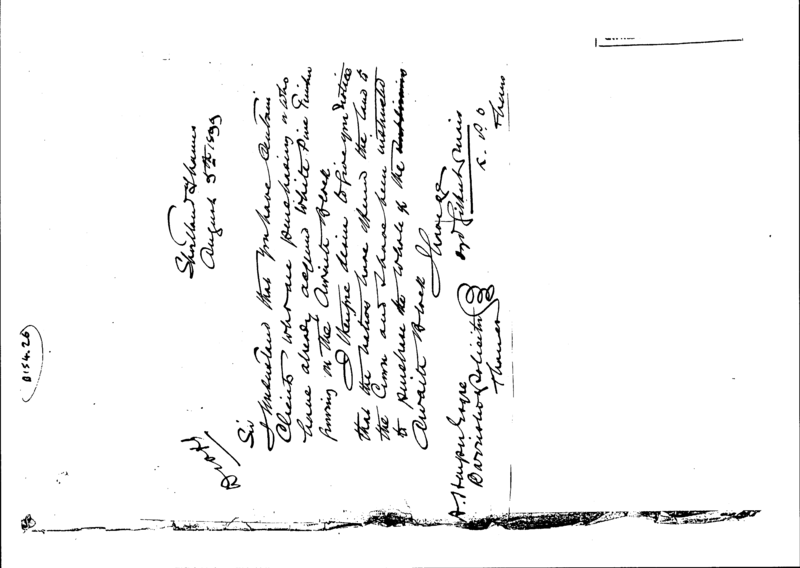 D154.20
Draft
Shortland Thames
August 5th 1899
Sir
I understand that you have certain
Clients who are purchasing or who
have already acquired White Pine Timber
growing on the Awaiti Block
I therefore desire to give you notice
that the natives have offered the land to
the Crown and I have been instructed
to purchase the whole of the
Awaiti Block
I have &c
sgd Gilbert Mair
L. P. O
Thames
Barrister & Solicitor
Thames